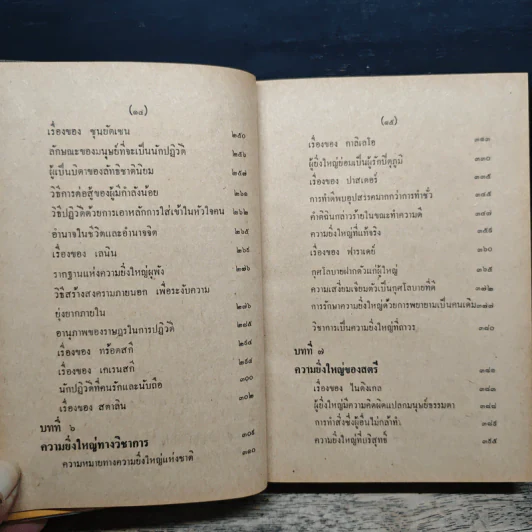 (๑๔)
เรื่องของ ซุนยัดเซน ๒๕๐
ลักษณะของมนุษย์ที่จะเป็นนักปฏิวัติ ๒๕๖
ผู้เป็นบิดาของลัทธิชาตินิยม ๒๕๗
วิธีการต่อสู้ของผู้มีกำลังน้อย ๒๖๑
วิธีปฏิวัติด้วยการเอาหลักการใส่เข้าในหัวใจคน ๒๖๒
อำนาจในชีวิตและอำนาจจิต ๒๖๕
เรื่องของ เลนิน ๒๖๕
รากฐานแห่งความยิ่งใหญ่ผุพัง ๒๗๖
วิธีสร้างสงครามภายนอก เพื่อระงับความ
ยุ่งยากภายใน ๒๗๖
อานุภาพของราษฎรในการปฏิวัติ ๒๘๕
เรื่องของ ทร๊อตสกี ๒๙๔
เรื่องของ เกเรนสกี ๒๙๔
นักปฏิวัติที่คนรักและนับถือ ๓๐๐
เรื่องของ สตาลิน ๓๐๒
บทที่ ๖
ความยิ่งใหญ่ทางวิชาการ ๓๐๙
ความหมายทางความยิ่งใหญ่แห่งชาติ ๓๑๐
(๑๕)
เรื่องของ กาลิเลโอ ๓๑๓
ผู้ยิ่งใหญ่ย่อมเป็นผู้รักปิตุภูมิ ๓๓๐
เรื่องของ ปาสเตอร์ ๓๓๑
การทำดีพบอุปสรรคมากกว่าการทำชั่ว ๓๔๕
คำติฉินกล่าวร้ายในขณะทำความดี ๓๔๗
ความยิ่งใหญ่ที่แท้จริง ๓๕๙
เรื่องของ ฟาราเดย์ ๓๖๐
กุศโลบายฝากตัวแก่ผู้ใหญ่ ๓๖๕
ความเสงี่ยมเจียมตัวเป็นกุศโลบายที่ดี ๓๗๒
การรักษาความยิ่งใหญ่ด้วยการพยายามเป็นคนเดิม ๓๗๗
วิชาการเป็นความยิ่งใหญ่ที่ถาวร ๓๘๐
บทที่ ๗
ความยิ่งใหญ่ของสตรี ๓๘๑
เรื่องของ ไนติงเกล ๓๘๓
ผู้ยิ่งใหญ่มีความคิดผิดแปลกมนุษย์ธรรมดา ๓๘๘
การทำสิ่งซึ่งผู้อื่นไม่กล้าทำ ๓๙๑
ความยิ่งใหญ่ที่บริสุทธิ์ ๓๙๕